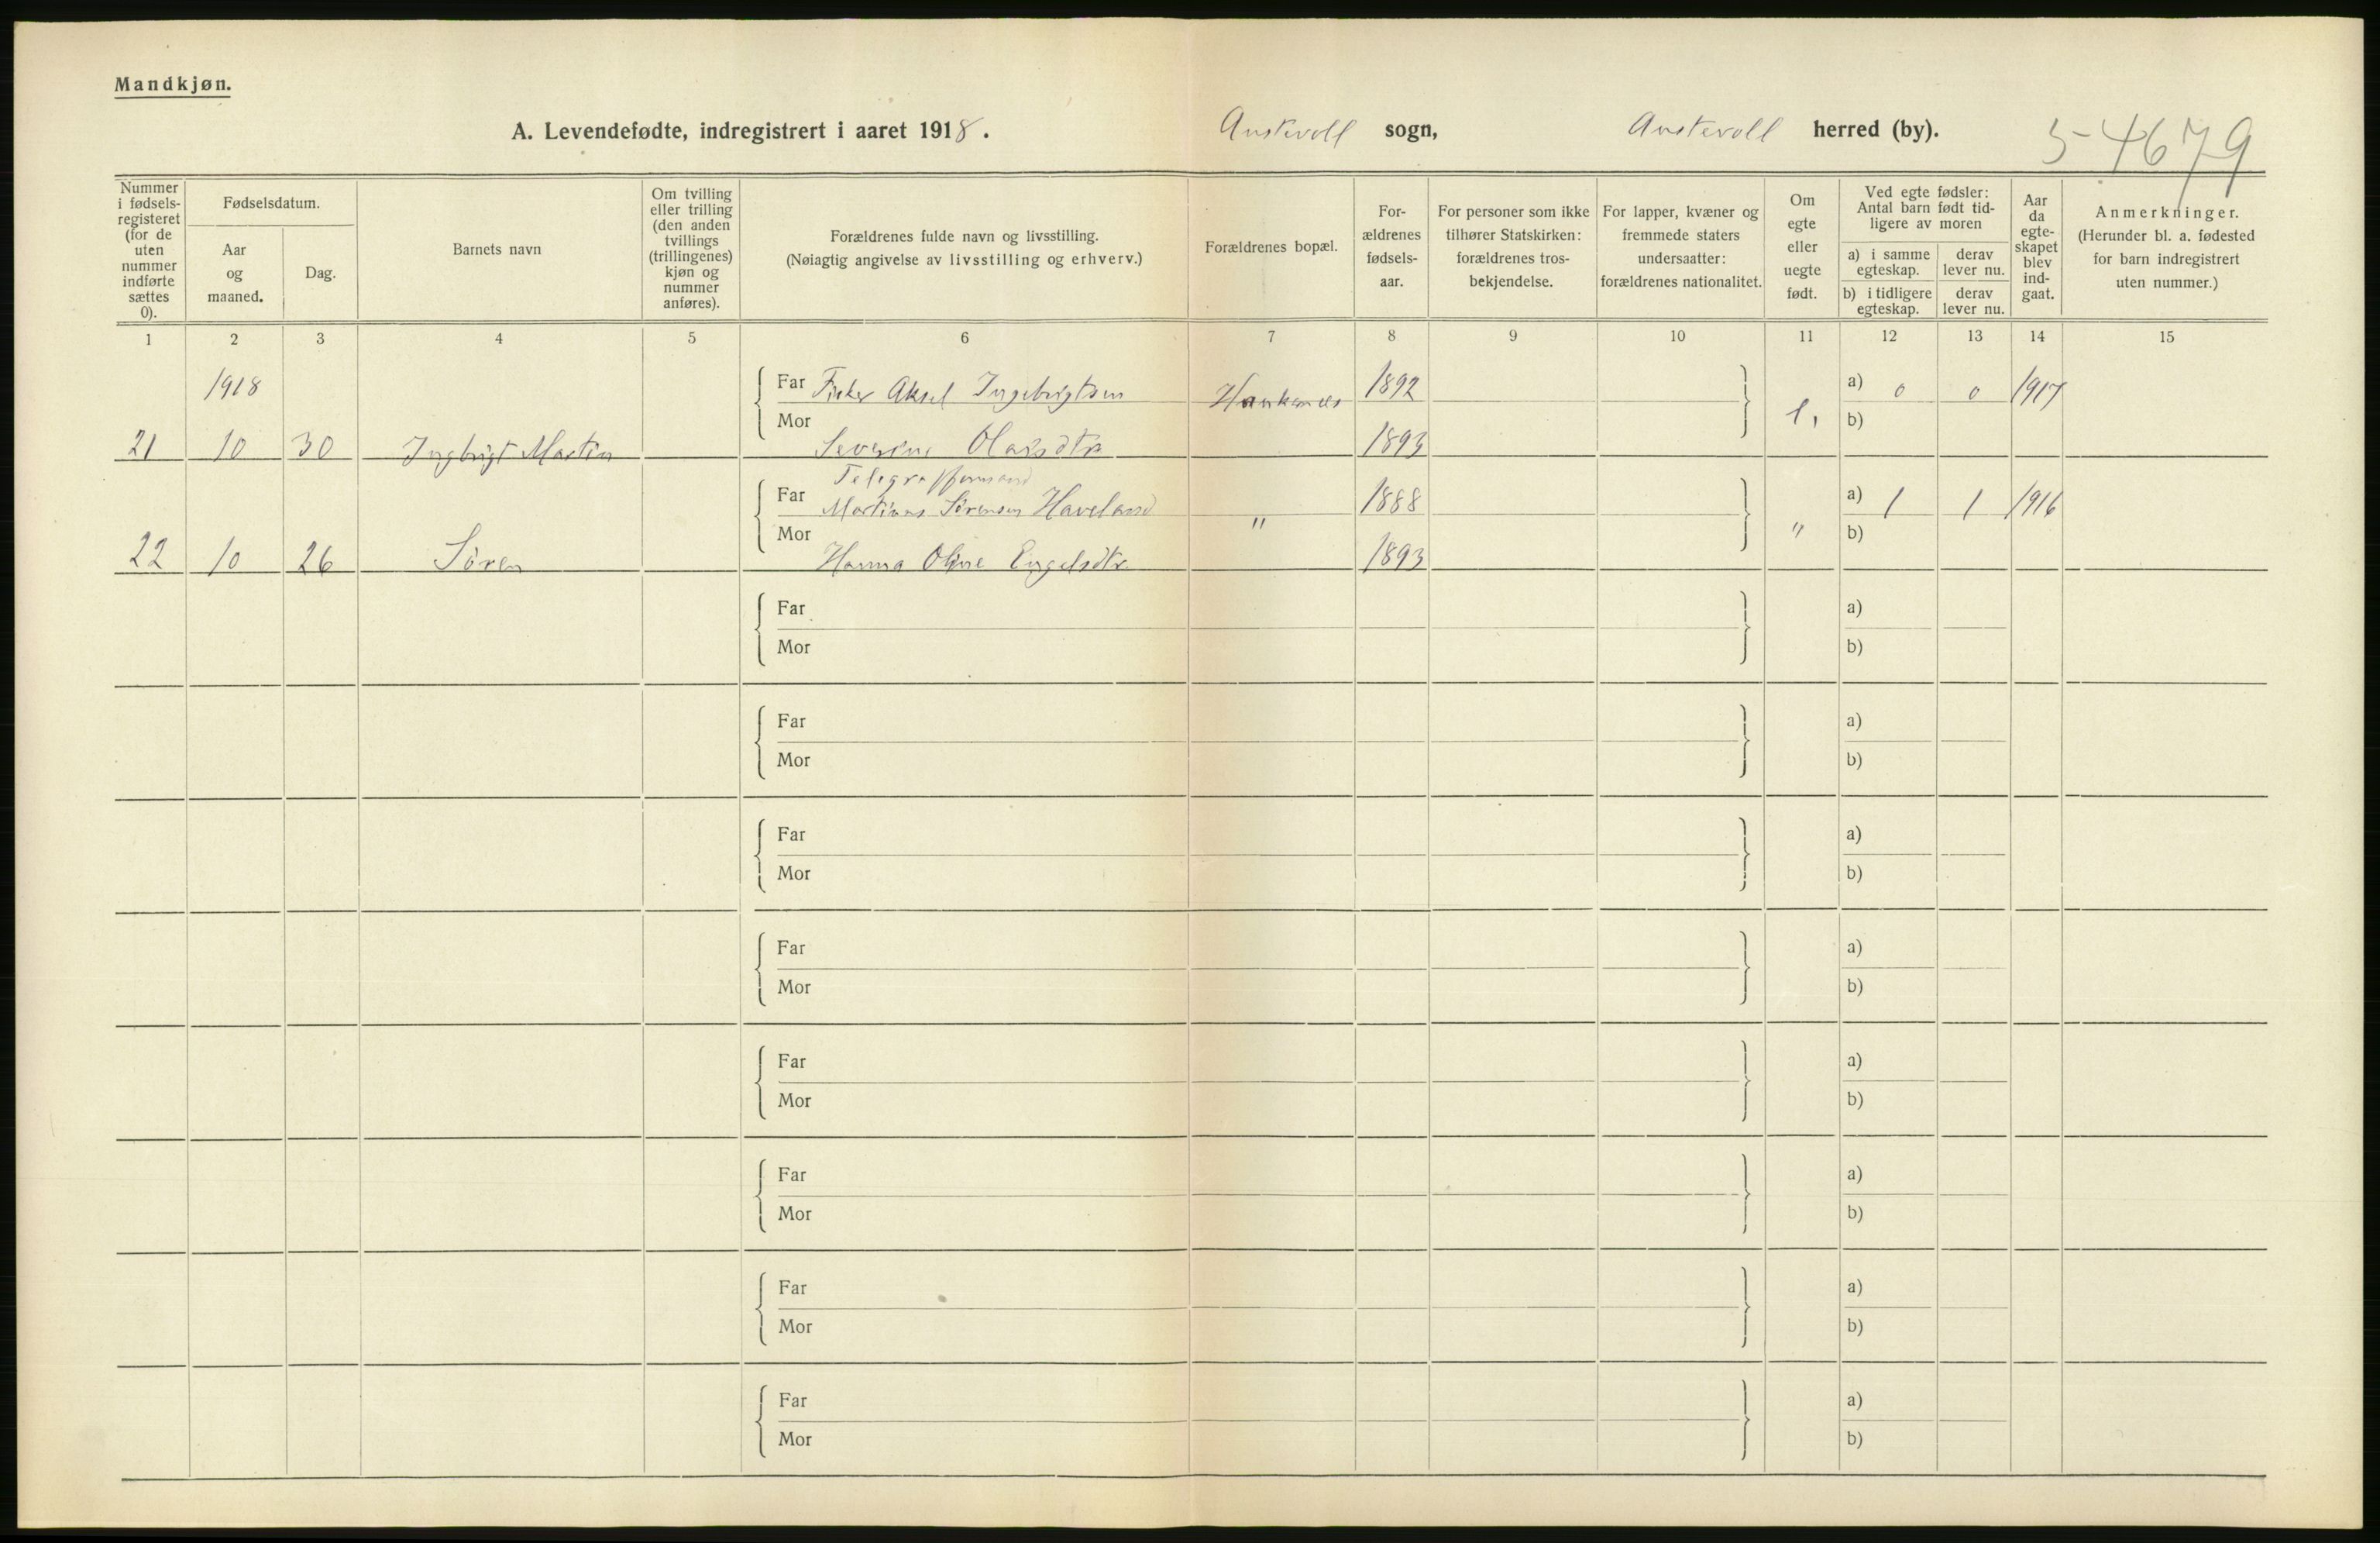 Mandkjøn.
A. Levendefødte, indregistrert i aaret 1918. Austevoll sogn, Austevoll herred (by). 5-4679
Nummer i fødsels-registeret (for de uten nummer indførte sættes 0).
Fødselsdatum.
Aar og maaned.
Dag.
Barnets navn
Om tvilling eller trilling (den anden tvillings (trillingenes) kjøn og nummer anføres).
Forældrenes fulde navn og livsstilling.
(Nøiagtig angivelse av livsstilling og erhverv.)
Forældrenes bopæl.
For-ældrenes fødsels-aar.
For personer som ikke tilhører Statskirken: forældrenes tros-bekjendelse.
For lapper, kvæner og fremmede staters undersaatter: forældrenes nationalitet.
Om egte eller uegte født.
Ved egte fødsler: Antal barn født tid-ligere av moren
a) i samme egteskap.
derav lever nu.
b) i tidligere egteskap.
derav lever nu.
Aar da egte-skapet blev ind-gaat.
Anmerkninger.
(Herunder bl. a. fødested for barn indregistrert uten nummer.)
1 2 3 4 5 6 7 8 9 10 11 12 13 14 15
1918 Far Fisker Aksel Ingebrigtsen 1892 a) 0 0 1917
Mor e. b)
21 10 30 Ingbrigt Martin Severine Olaisdtr 1893
Far Martinus Sørensen Haveland " 1888 " a) 1 1 1916
Mor b)
22 10 26 Sören Hanna Oline Engelsdtr 1893
Far a)
Mor b)
Far a)
Mor b)
Far a)
Mor b)
Far a)
Mor b)
Far a)
Mor b)
Far a)
Mor b)
Far a)
Mor b)
Far a)
Mor b)